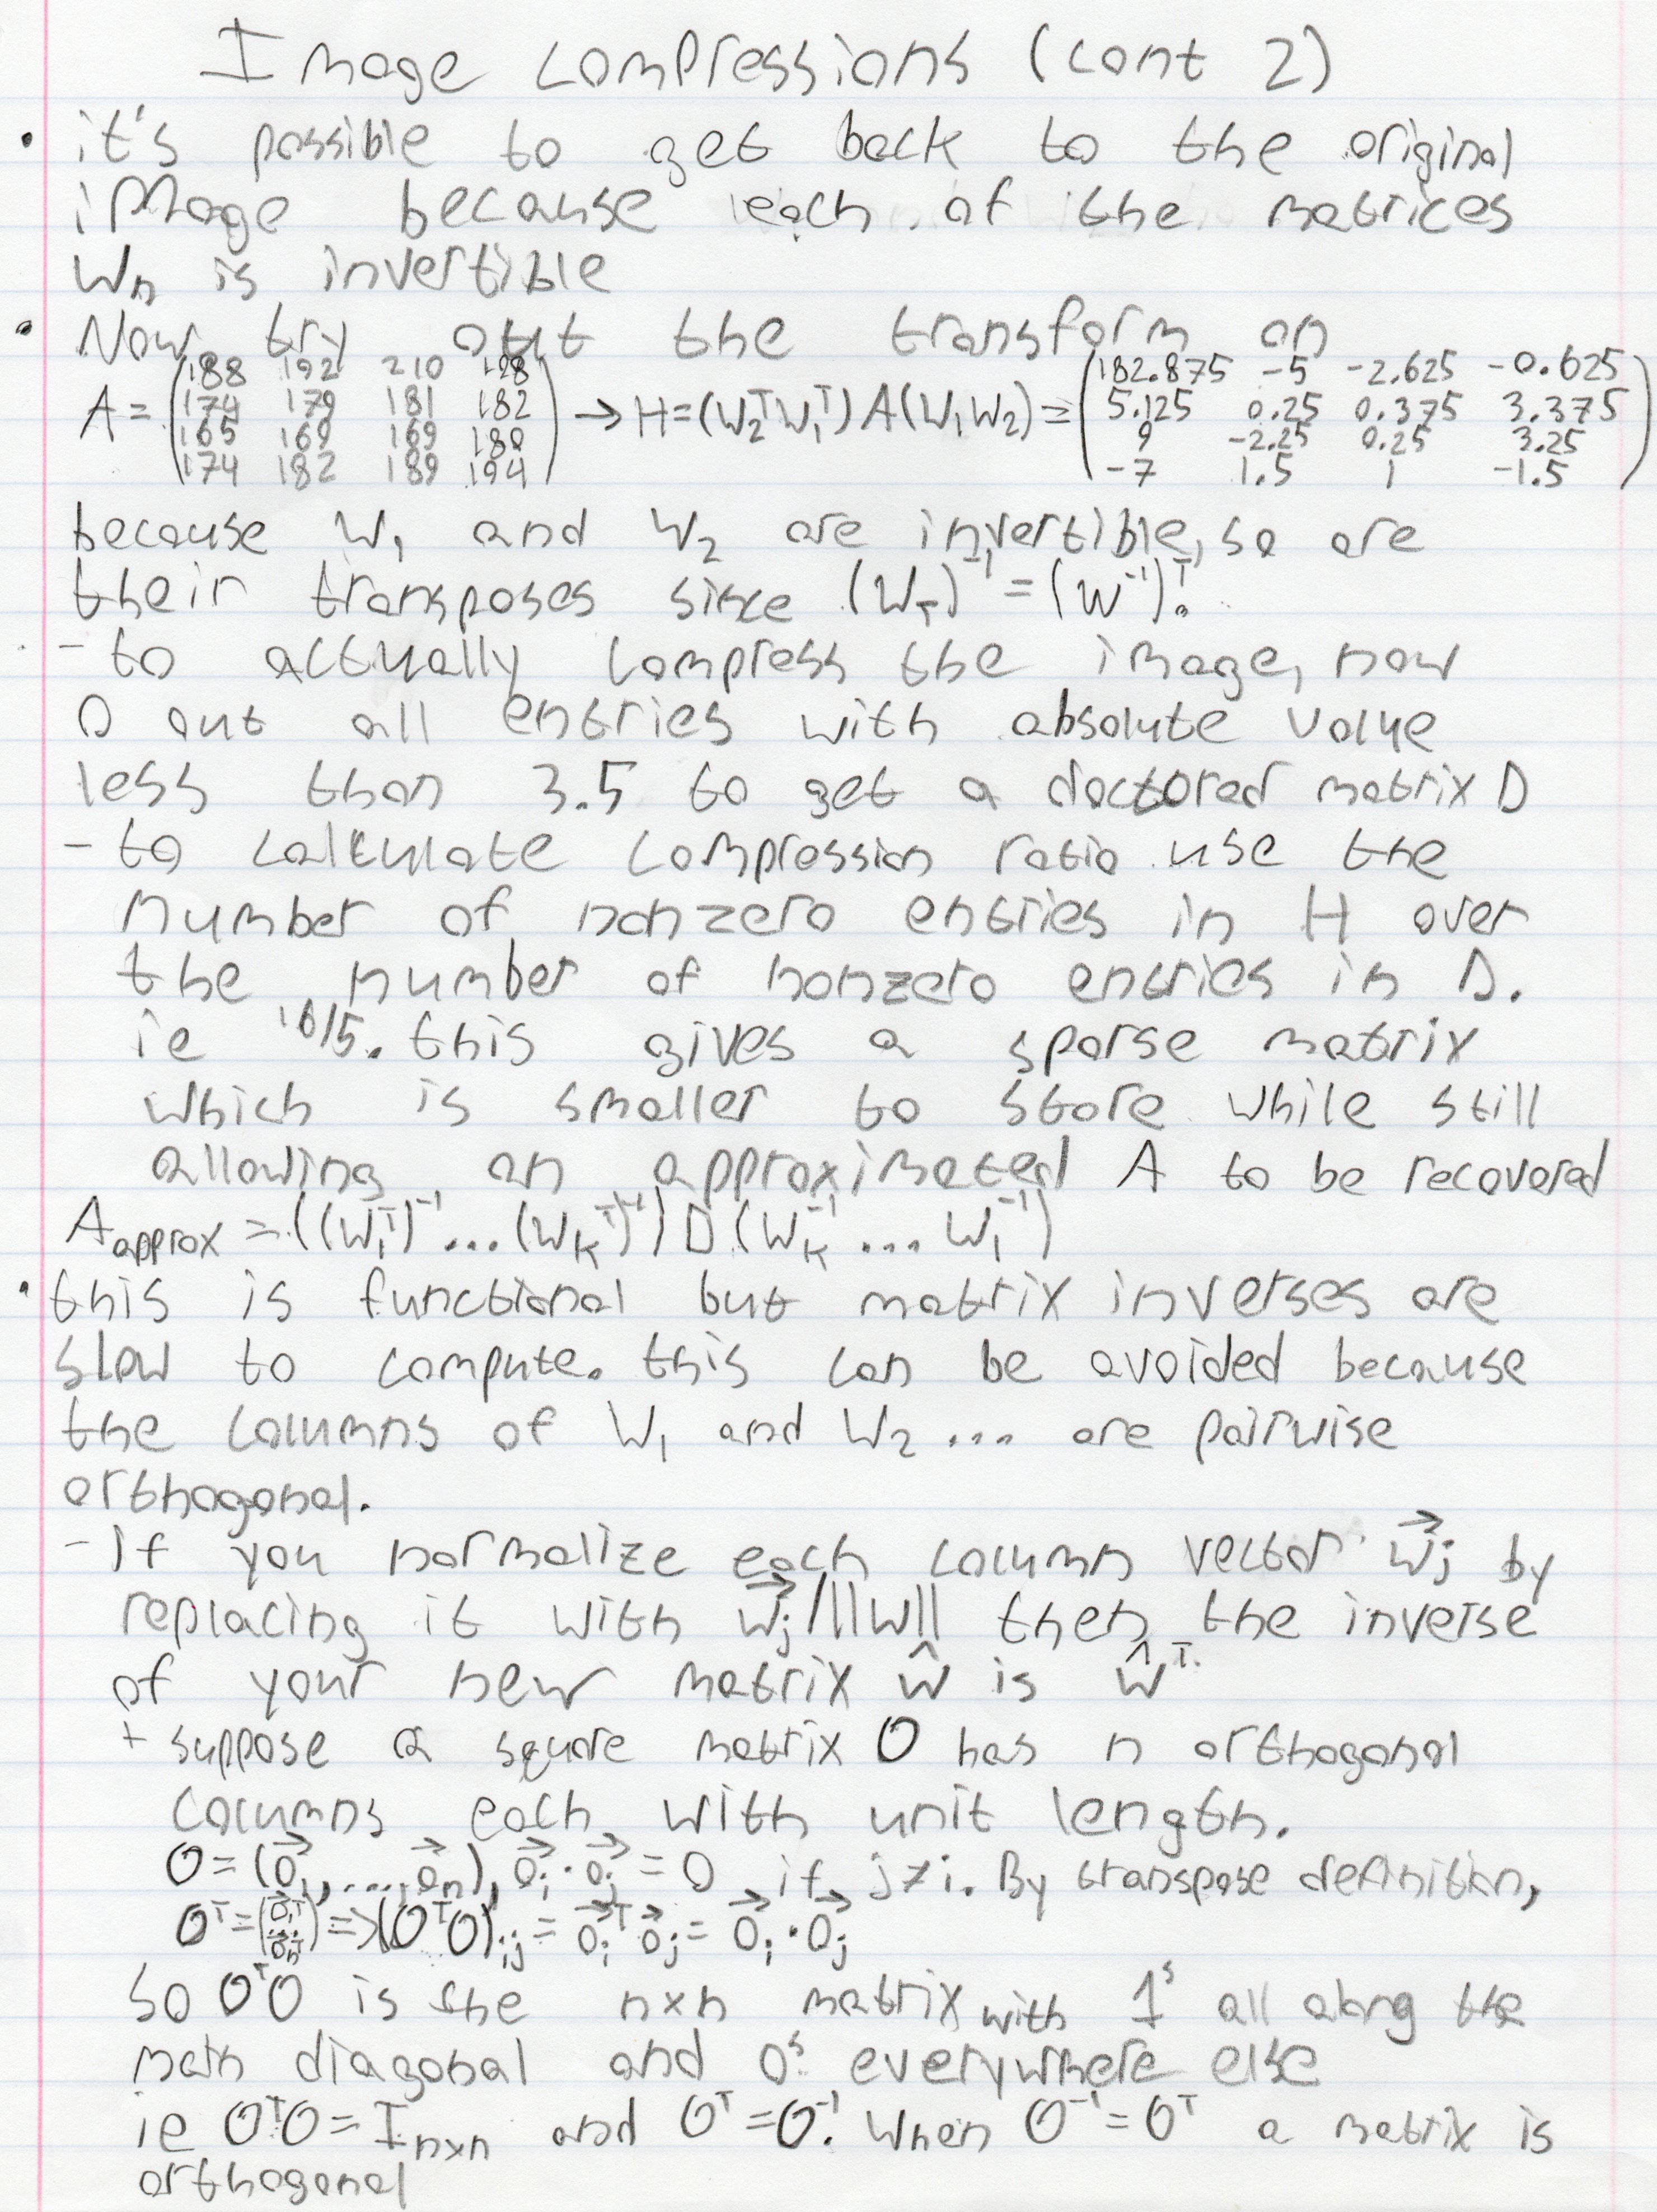 Image Compressions (cont 2)
• it's possible to get back to the original
image because each of the matrices
Wₙ is invertible
• Now try out the transform on
A = (188 192 210 198; 174 179 181 182; 165 169 169 180; 174 182 189 194) → H = (W₂ᵀW₁ᵀ) A (W₁W₂) = (182.875 -5 -2.625 -0.625; 5.125 0.25 0.375 3.375; 9 -2.25 0.25 3.25; -7 1.5 1 -1.5)
because W₁ and W₂ are invertible, so are
their transposes since (W_T)⁻¹ = (W⁻¹)ᵀ.
- to actually compress the image, now
0 out all entries with absolute value
less than 3.5 to get a doctored matrix D
- to calculate compression ratio use the
number of nonzero entries in H over
the number of nonzero entries in D.
ie 16/5. this gives a sparse matrix
which is smaller to store while still
allowing an approximated A to be recovered
A_approx = ((W₁ᵀ)⁻¹ ... (W_Kᵀ)⁻¹) D (W_K⁻¹ ... W₁⁻¹)
• this is functional but matrix inverses are
slow to compute. this can be avoided because
the columns of W₁ and W₂ ... are pairwise
orthogonal.
- If you normalize each column vector w⃗ⱼ by
replacing it with w⃗ⱼ/||w|| then the inverse
of your new matrix ŵ is ŵᵀ.
+ suppose a square matrix O has n orthogonal
columns each with unit length.
O = (o⃗₁, ..., o⃗ₙ), o⃗ᵢ · o⃗ⱼ = 0 if j ≠ i. By transpose definition,
Oᵀ = (o⃗₁ᵀ; ...; o⃗ₙᵀ) => (OᵀO)ᵢⱼ = o⃗ᵢᵀ o⃗ⱼ = o⃗ᵢ · o⃗ⱼ
so OᵀO is the n×n matrix with 1ˢ all along the
main diagonal and 0ˢ everywhere else
ie OᵀO = I_n×n and Oᵀ = O⁻¹. When O⁻¹ = Oᵀ a matrix is
orthogonal